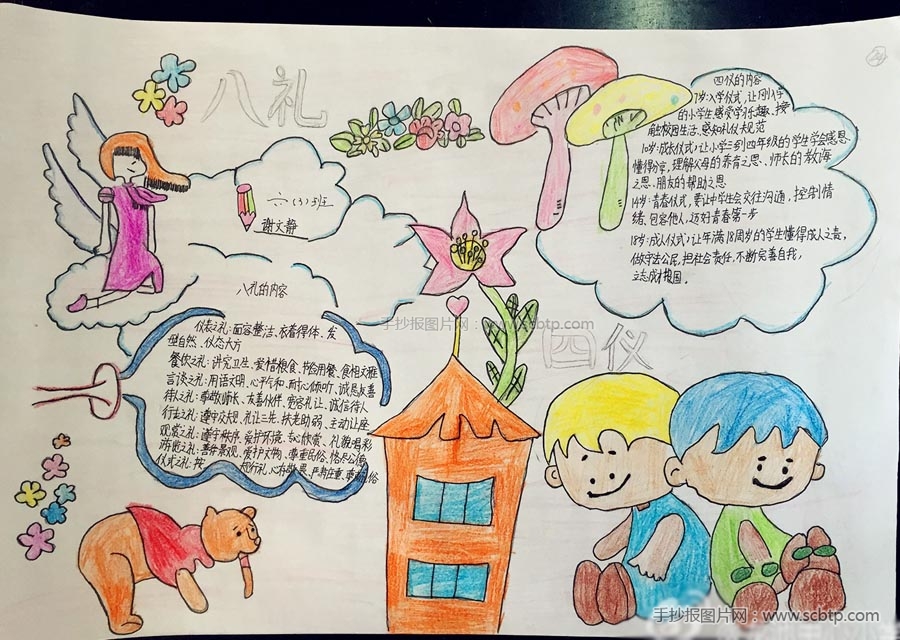 八礼
六(3)班
谢文静
八礼的内容
仪表之礼:面容整洁、衣着得体、发
型自然、仪态大方
餐饮之礼:讲究卫生、爱惜粮食、节俭用餐、食相文雅
言谈之礼:用语文明、心平气和、耐心倾听、诚恳友善
待人之礼:尊敬师长、友善伙伴、宽容礼让、诚信待人
行走之礼:遵守交规、礼让三先、扶老助弱、主动让座
观赏之礼:遵守秩序、爱护环境、专心欣赏、礼貌喝彩
游览之礼:善待景观、爱护文物、尊重民俗、恪尽公德
仪式之礼:按规行礼、心存敬畏、严肃庄重、尊重礼俗
四仪的内容
7岁:入学仪式,让刚入学
的小学生感受学习乐趣、接
触校园生活、感知礼仪规范
10岁:成长仪式;让小学三到四年级的学生学会感恩
懂得分享,理解父母的养育之恩、师长的教诲
之恩、朋友的帮助之恩
14岁:青春仪式,要让中学生会交往沟通,控制情
绪、包容他人,迈好青春第一步
18岁:成人仪式;让年满18周岁的学生懂得成人之责,
做守法公民,担社会责任,不断完善自我,
立志成才报国。
手抄报图片网:www.scbtp.com
四仪
手抄报图片网:www.scbtp.com